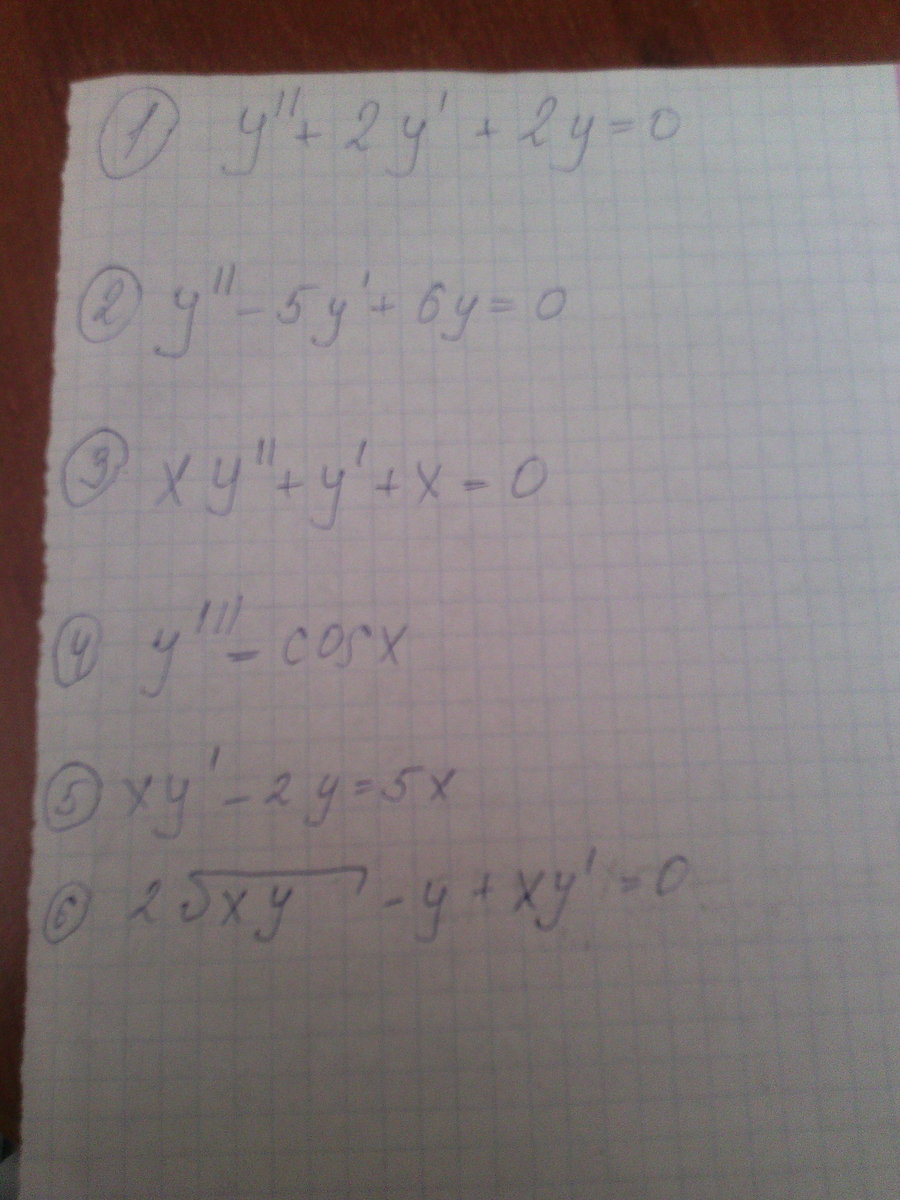 ① y'' + 2y' + 2y = 0
② y'' - 5y' + 6y = 0
③ xy'' + y' + x = 0
④ y''' = cosx
⑤ xy' - 2y = 5x
⑥ 2√xy - y + xy' = 0